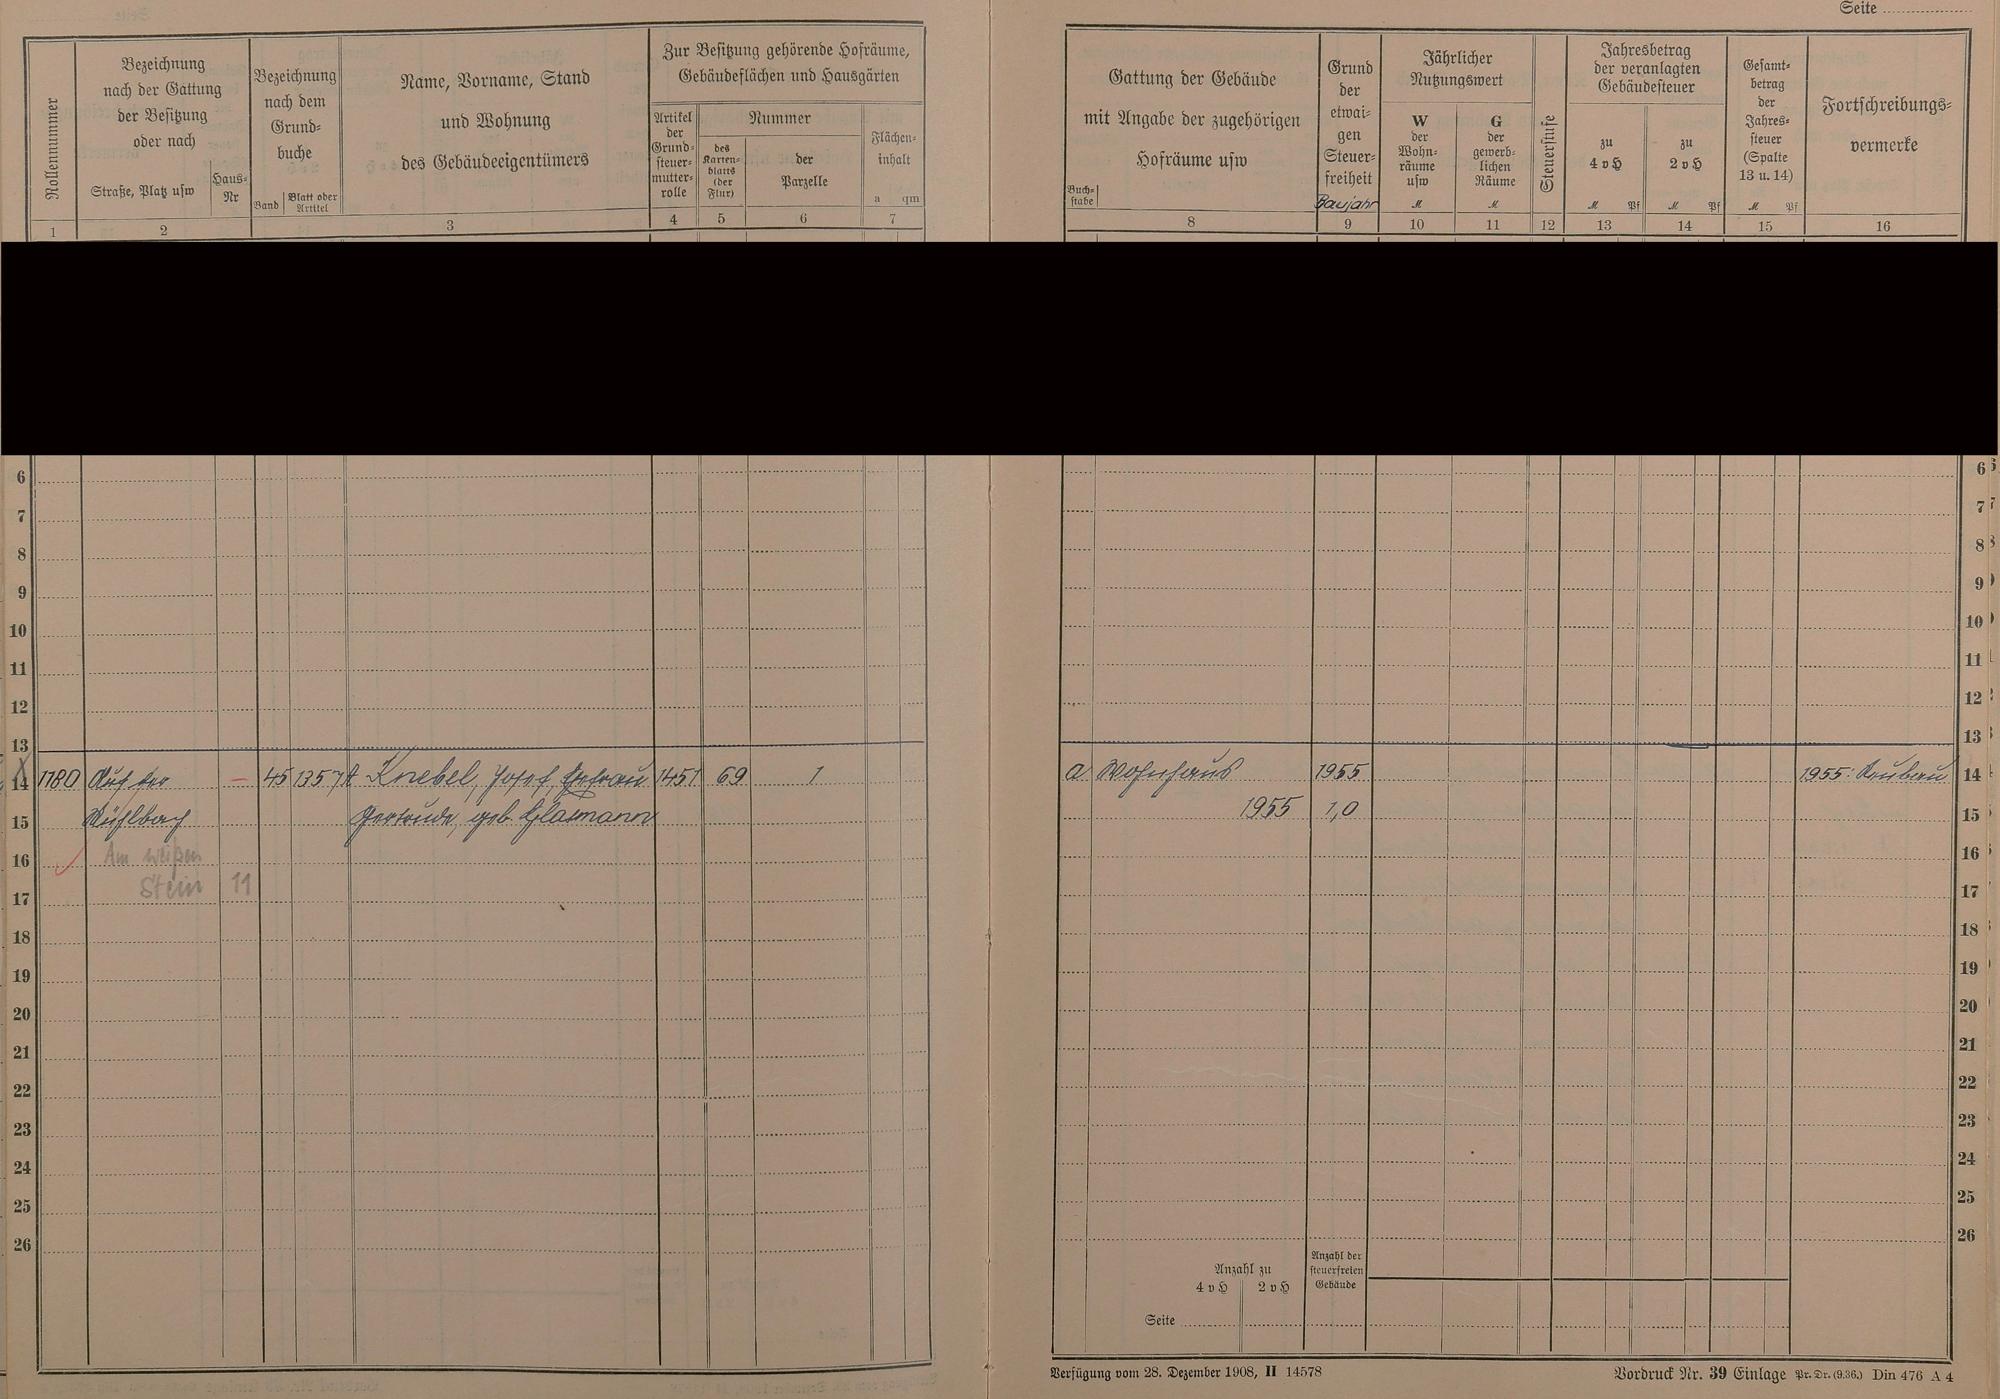 Seite
Rollennummer
Bezeichnung
nach der Gattung
der Besitzung
oder nach
Straße, Platz usw
Haus-
Nr
Bezeichnung
nach dem
Grund-
buche
Band
Blatt oder
Artikel
Name, Vorname, Stand
und Wohnung
des Gebäudeeigentümers
Zur Besitzung gehörende Hofräume,
Gebäudeflächen und Hausgärten
Artikel
der
Grund-
steuer-
mutter-
rolle
Nummer
des
Karten-
blatts
(der
Flur)
der
Parzelle
Flächen-
inhalt
a qm
1 2 3 4 5 6 7
Buch-
stabe
Gattung der Gebäude
mit Angabe der zugehörigen
Hofräume usw
Grund
der
etwai-
gen
Steuer-
freiheit
Baujahr
Jährlicher
Nutzungswert
W
der
Wohn-
räume
usw
M
G
der
gewerb-
lichen
Räume
M
Steuerstufe
Jahresbetrag
der veranlagten
Gebäudesteuer
zu
4 v H
M Pf
zu
2 v H
M Pf
Gesamt-
betrag
der
Jahres-
steuer
(Spalte
13 u. 14)
M Pf
Fortschreibungs-
vermerke
8 9 10 11 12 13 14 15 16
6 6
7 7
8 8
9 9
10 10
11 11
12 12
13 13
14 1180 Auf der – 45 1357 A Knebel, Josef, Ehefrau 1451 69 1 a. Wohnhaus 1955 1955: Neubau 14
15 Mühlbach Gertrude, geb. Glasmann 1955 1,0 15
16 Am weißen 16
17 Stein 11 17
18 18
19 19
20 20
21 21
22 22
23 23
24 24
25 25
26 26
Anzahl zu
4 v H 2 v H
Anzahl der
steuerfreien
Gebäude
Seite
Verfügung vom 28. Dezember 1908, II 14578
Vordruck Nr. 39 Einlage Pr. Dr. (9.36.) Din 476 A 4